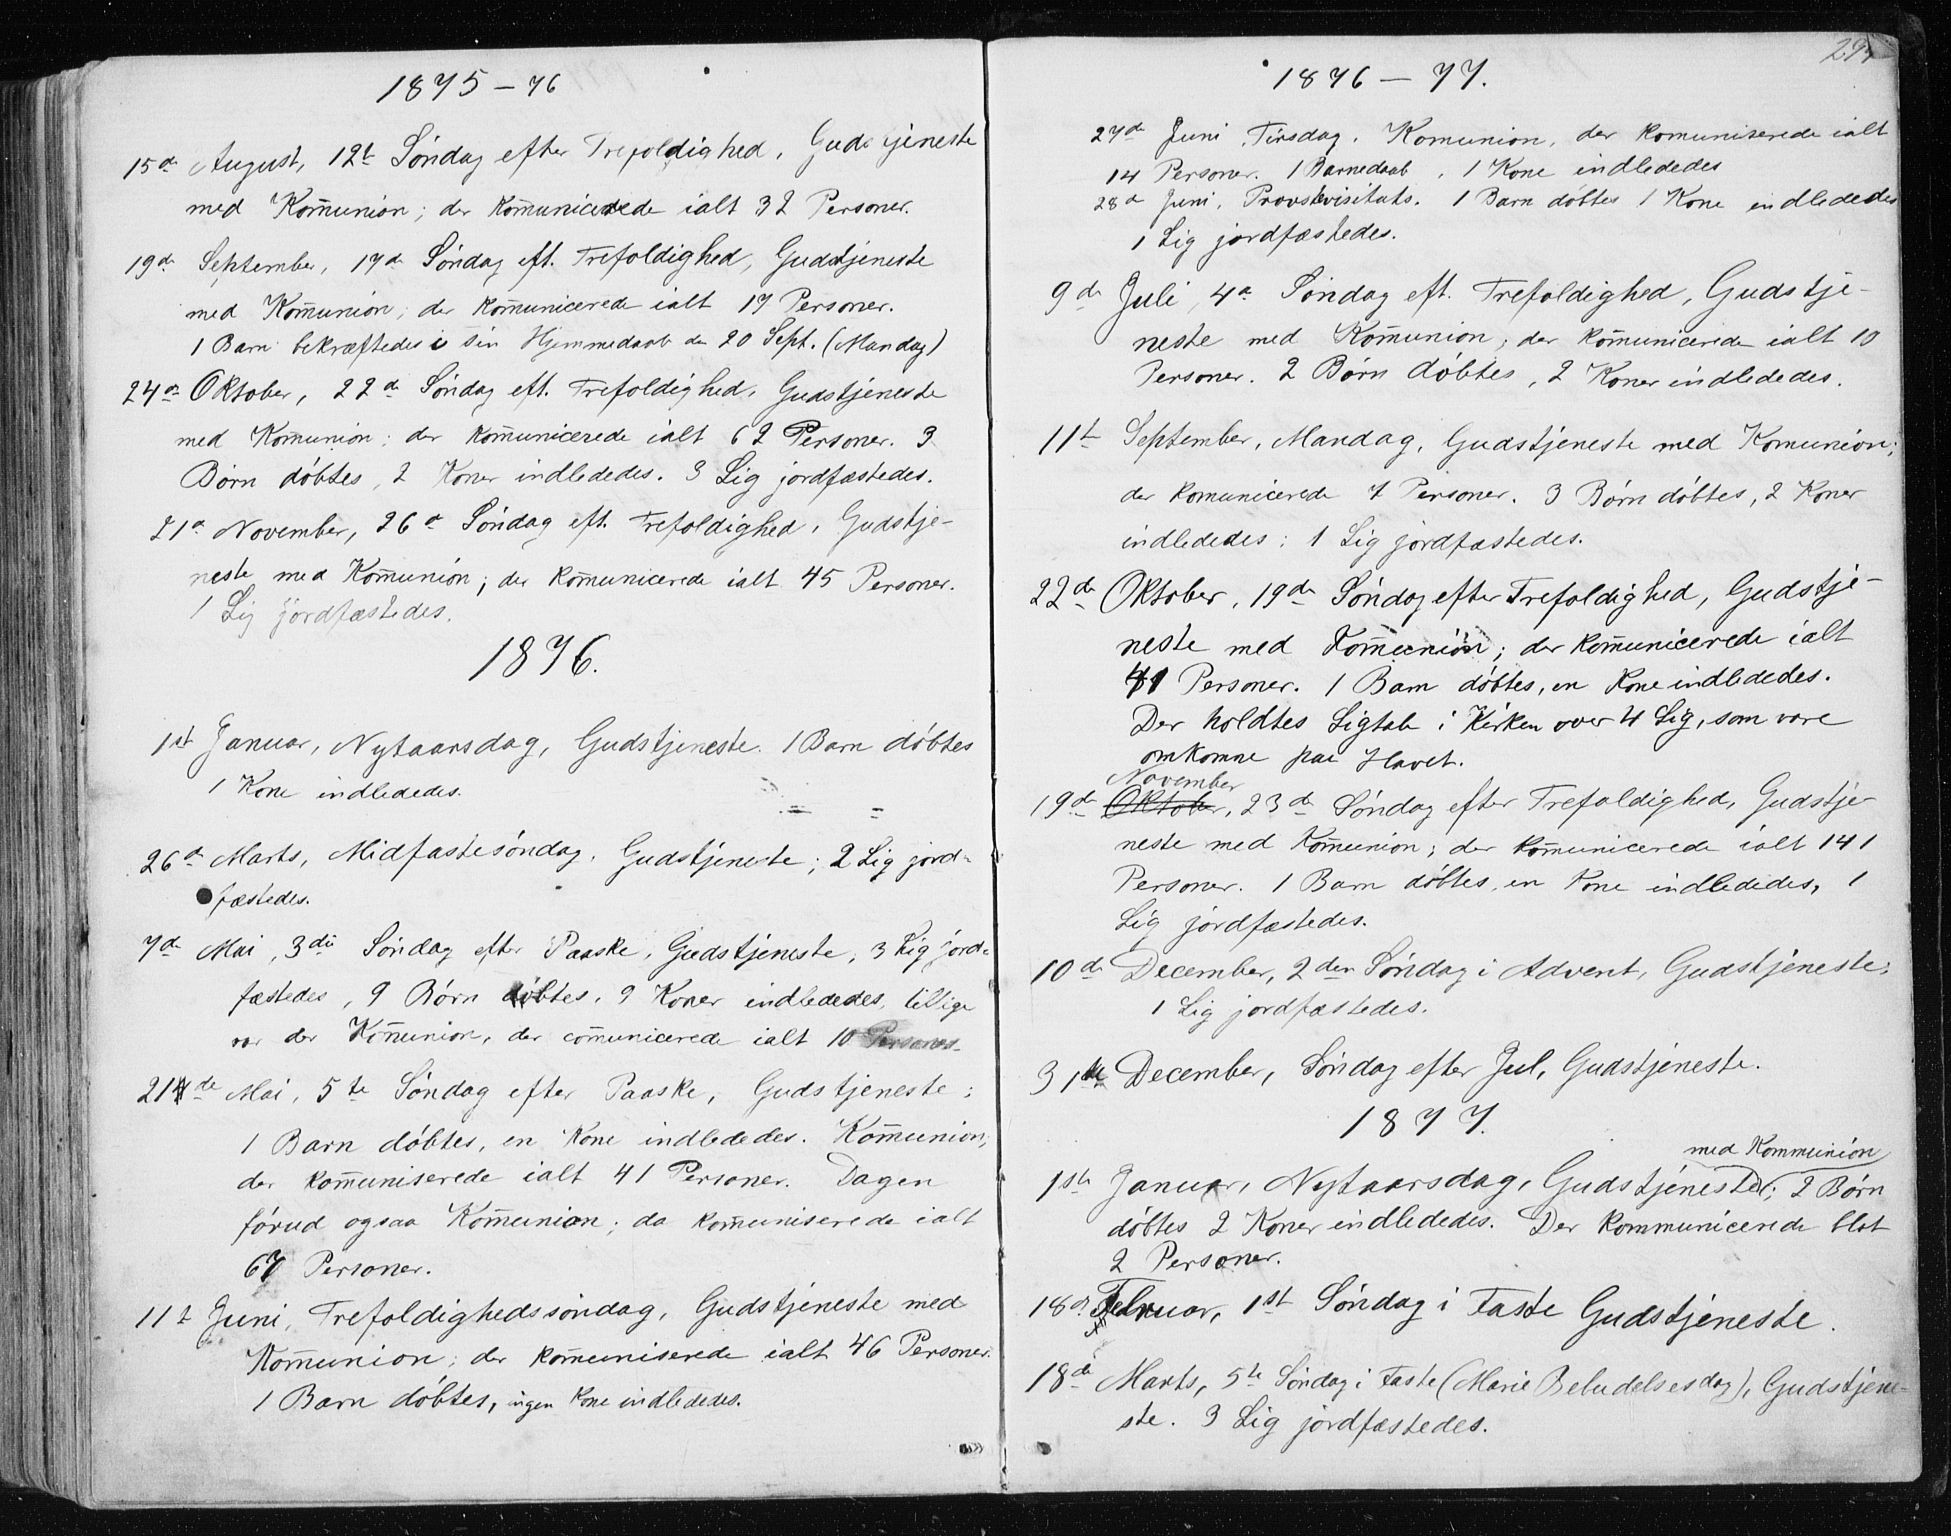 1875-76
15de August, 12te Söndag efter Trefoldighed, Gudstjeneste
med Kom̄union; der kom̄unicerede ialt 32 Personer.
19de September, 17de Söndag eft. Trefoldighed, Gudstjeneste
med Kom̄union; der kom̄unicerede ialt 17 Personer.
1 Barn bekræftedes i sin Hjemmedaab den 20 Sept. (Mandag)
24de Oktober, 22de Söndag eft. Trefoldighed, Gudstjeneste
med Kom̄union; der kom̄unicerede ialt 62 Personer. 3
Börn döbtes, 2 Koner indlededes. 3 Lig jordfæstedes.
21de November, 26de Söndag eft. Trefoldighed, Gudstje-
neste med Kom̄union; der kom̄unicerede ialt 45 Personer.
1 Lig jordfæstedes.
1876.
1ste Januar, Nytaarsdag, Gudstjeneste. 1 Barn döbtes
1 Kone indlededes.
26de Marts, Midfastesöndag, Gudstjeneste; 2 Lig jord-
fæstedes.
7de Mai, 3die Söndag efter Paaske, Gudstjeneste, 3 Lig jord-
fæstedes, 9 Börn döbtes, 9 Koner indlededes, tillige
var der Kom̄union, der com̄unicerede ialt 10 Personer.
21de Mai, 5te Söndag efter Paaske, Gudstjeneste;
1 Barn döbtes, en Kone indlededes. Kom̄union,
der kom̄uniserede ialt 41 Personer. Dagen
förud ogsaa Kom̄union; da kom̄uniserede ialt
67 Personer.
11te Juni, Trefoldighedssöndag, Gudstjeneste med
Kom̄union; der kom̄uniserede ialt 46 Personer.
1 Barn döbtes, ingen Kone indlededes.
1876-77.
27de Juni, Tirsdag, Komunion, der komuniserede ialt
14 Personer. 1 Barnedaab, 1 Kone indlededes
28de Juni, Provstevisitats. 1 Barn döbtes 1 Kone indlededes
1 Lig jordfæstedes.
9de Juli, 4de Söndag eft. Trefoldighed, Gudstje-
neste med Kom̄union; der kom̄unicerede ialt 10
Personer. 2 Börn döbtes, 2 Koner indlededes.
11te September, Mandag, Gudstjeneste med Komunion;
der komunicerede 7 Personer. 3 Börn döbtes, 2 Koner
indlededes; 1 Lig jordfæstedes.
22de Oktober, 19de Söndag efter Trefoldighed, Gudstje-
neste med Kom̄union; der kom̄unicerede ialt
41 Personer. 1 Barn döbtes, en Kone indlededes.
Der holdtes Ligtale i Kirken over 4 Lig, som vare
omkomne paa Havet.
November
19de Oktober, 23de Söndag efter Trefoldighed, Gudstje-
neste med Kom̄union; der kom̄unicerede ialt 141
Personer. 1 Barn döbtes, en Kone indlededes, 1
Lig jordfæstedes.
10de December, 2den Söndag i Advent, Gudstjeneste;
1 Lig jordfæstedes.
31te December, Söndag efter Jul, Gudstjeneste.
1877.
med Kommunion
1ste Januar, Nytaarsdag, Gudstjeneste; 2 Börn
döbtes 2 Koner indlededes. Der kommunicerede blot
2 Personer.
18de Februar, 1ste Söndag i Faste Gudstjeneste.
18de Marts, 5te Söndag i Faste (Marie Bebudelsesdag), Gudstjene-
ste. 3 Lig jordfæstedes.